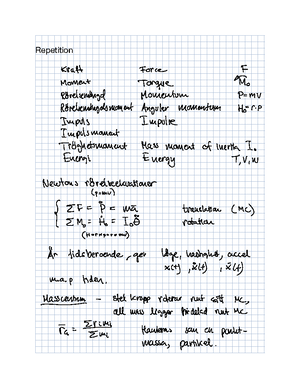 Repetition
Kraft Force F
Moment Torque M₀
Rörelsemängd Momentum P=mv
Rörelsemängdsmoment Angular momentum H₀=r·p
Impuls Impulse
Impulsmoment
Tröghetsmoment Mass moment of inertia I₀
Energi Energy T, V, W
Newtons rörelseekvationer
(p=mv)
ΣF = Ṗ = ma translation (MC)
ΣM₀ = Ḣ₀ = I₀θ̈ rotation
Är tidsberoende, ger läge, hastighet, accel
x(t), ẋ(t), ẍ(t)
m.a.p tiden.
Masscentrum – stel kropp roterar runt sitt MC,
all massa ligger fördelad runt MC
r̄G = Σrᵢmᵢ / Σmᵢ Hanteras som en punkt-
massa, partikel.